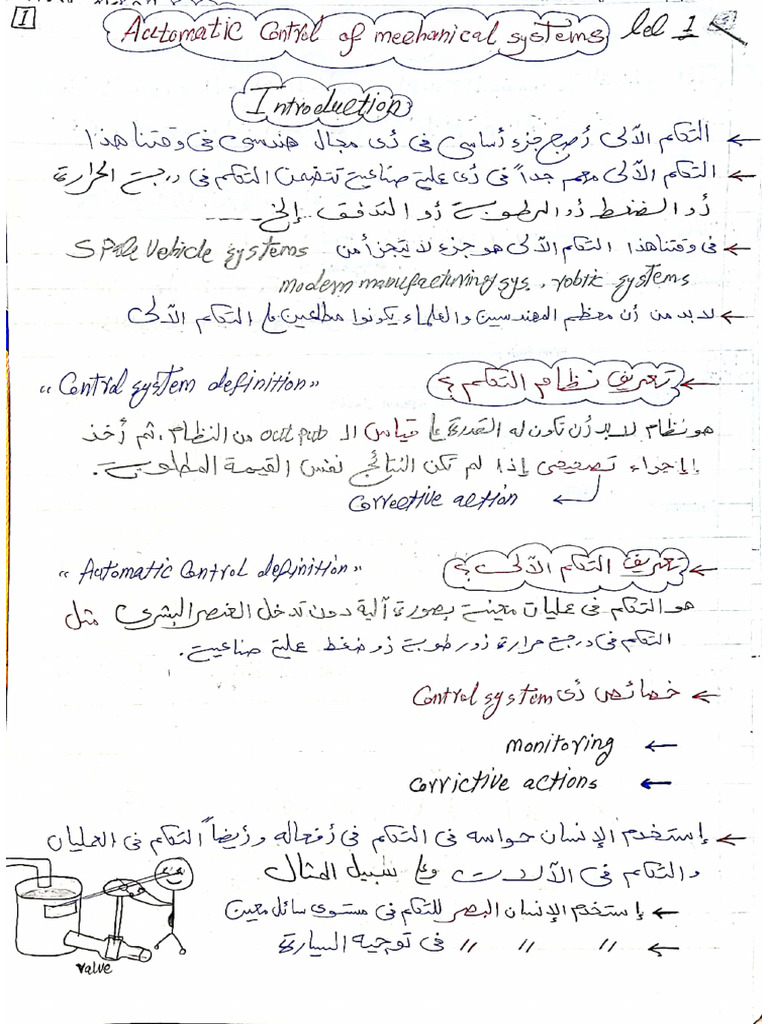 1
Automatic Control of mechanical systems lec 1
Introduction
← التحكم الآلى أصبح جزء أساسى فى أى مجال هندسى فى وقتنا هذا
← التحكم الآلى مهم جداً فى أى عملية صناعية تتضمن التحكم فى درجة الحرارة
أو الضغط أو الرطوبة أو التدفق .. إلخ ....
← فى وقتنا هذا التحكم الآلى هو جزء لا يتجزأ من Vehicle systems
modern manufacturing sys. , robtic systems
← لا بد من أن معظم المهندسين والعلماء يكونوا مطلعين على التحكم الآلى
← تعريف نظام التحكم ؟ "Control system definition"
هو نظام لا بد أن تكون له القدرة على قياس الـ output من النظام ، ثم أخذ
إجراء تصحيحى إذا لم تكن النتائج نفس القيمة المطلوبة .
corrective action ←
← تعريف التحكم الآلى ؟ "Automatic Control definition"
هو التحكم فى عمليات معينة بصورة آلية دون تدخل العنصر البشرى مثل
التحكم فى درجة حرارة أو رطوبة أو ضغط عملية صناعية .
← خصائص أى Control system
← monitoring
← corrictive actions
← إستخدم الإنسان حواسه فى التحكم فى أفعاله وأيضاً التحكم فى العمليات
والتحكم فى الآلات وعلى سبيل المثال
← إستخدم الإنسان البصر للتحكم فى مستوى سائل معين
← " " " فى توجيه السيارة
valve